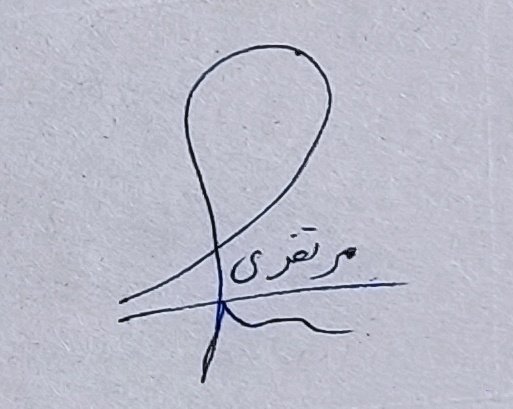 مرتضی